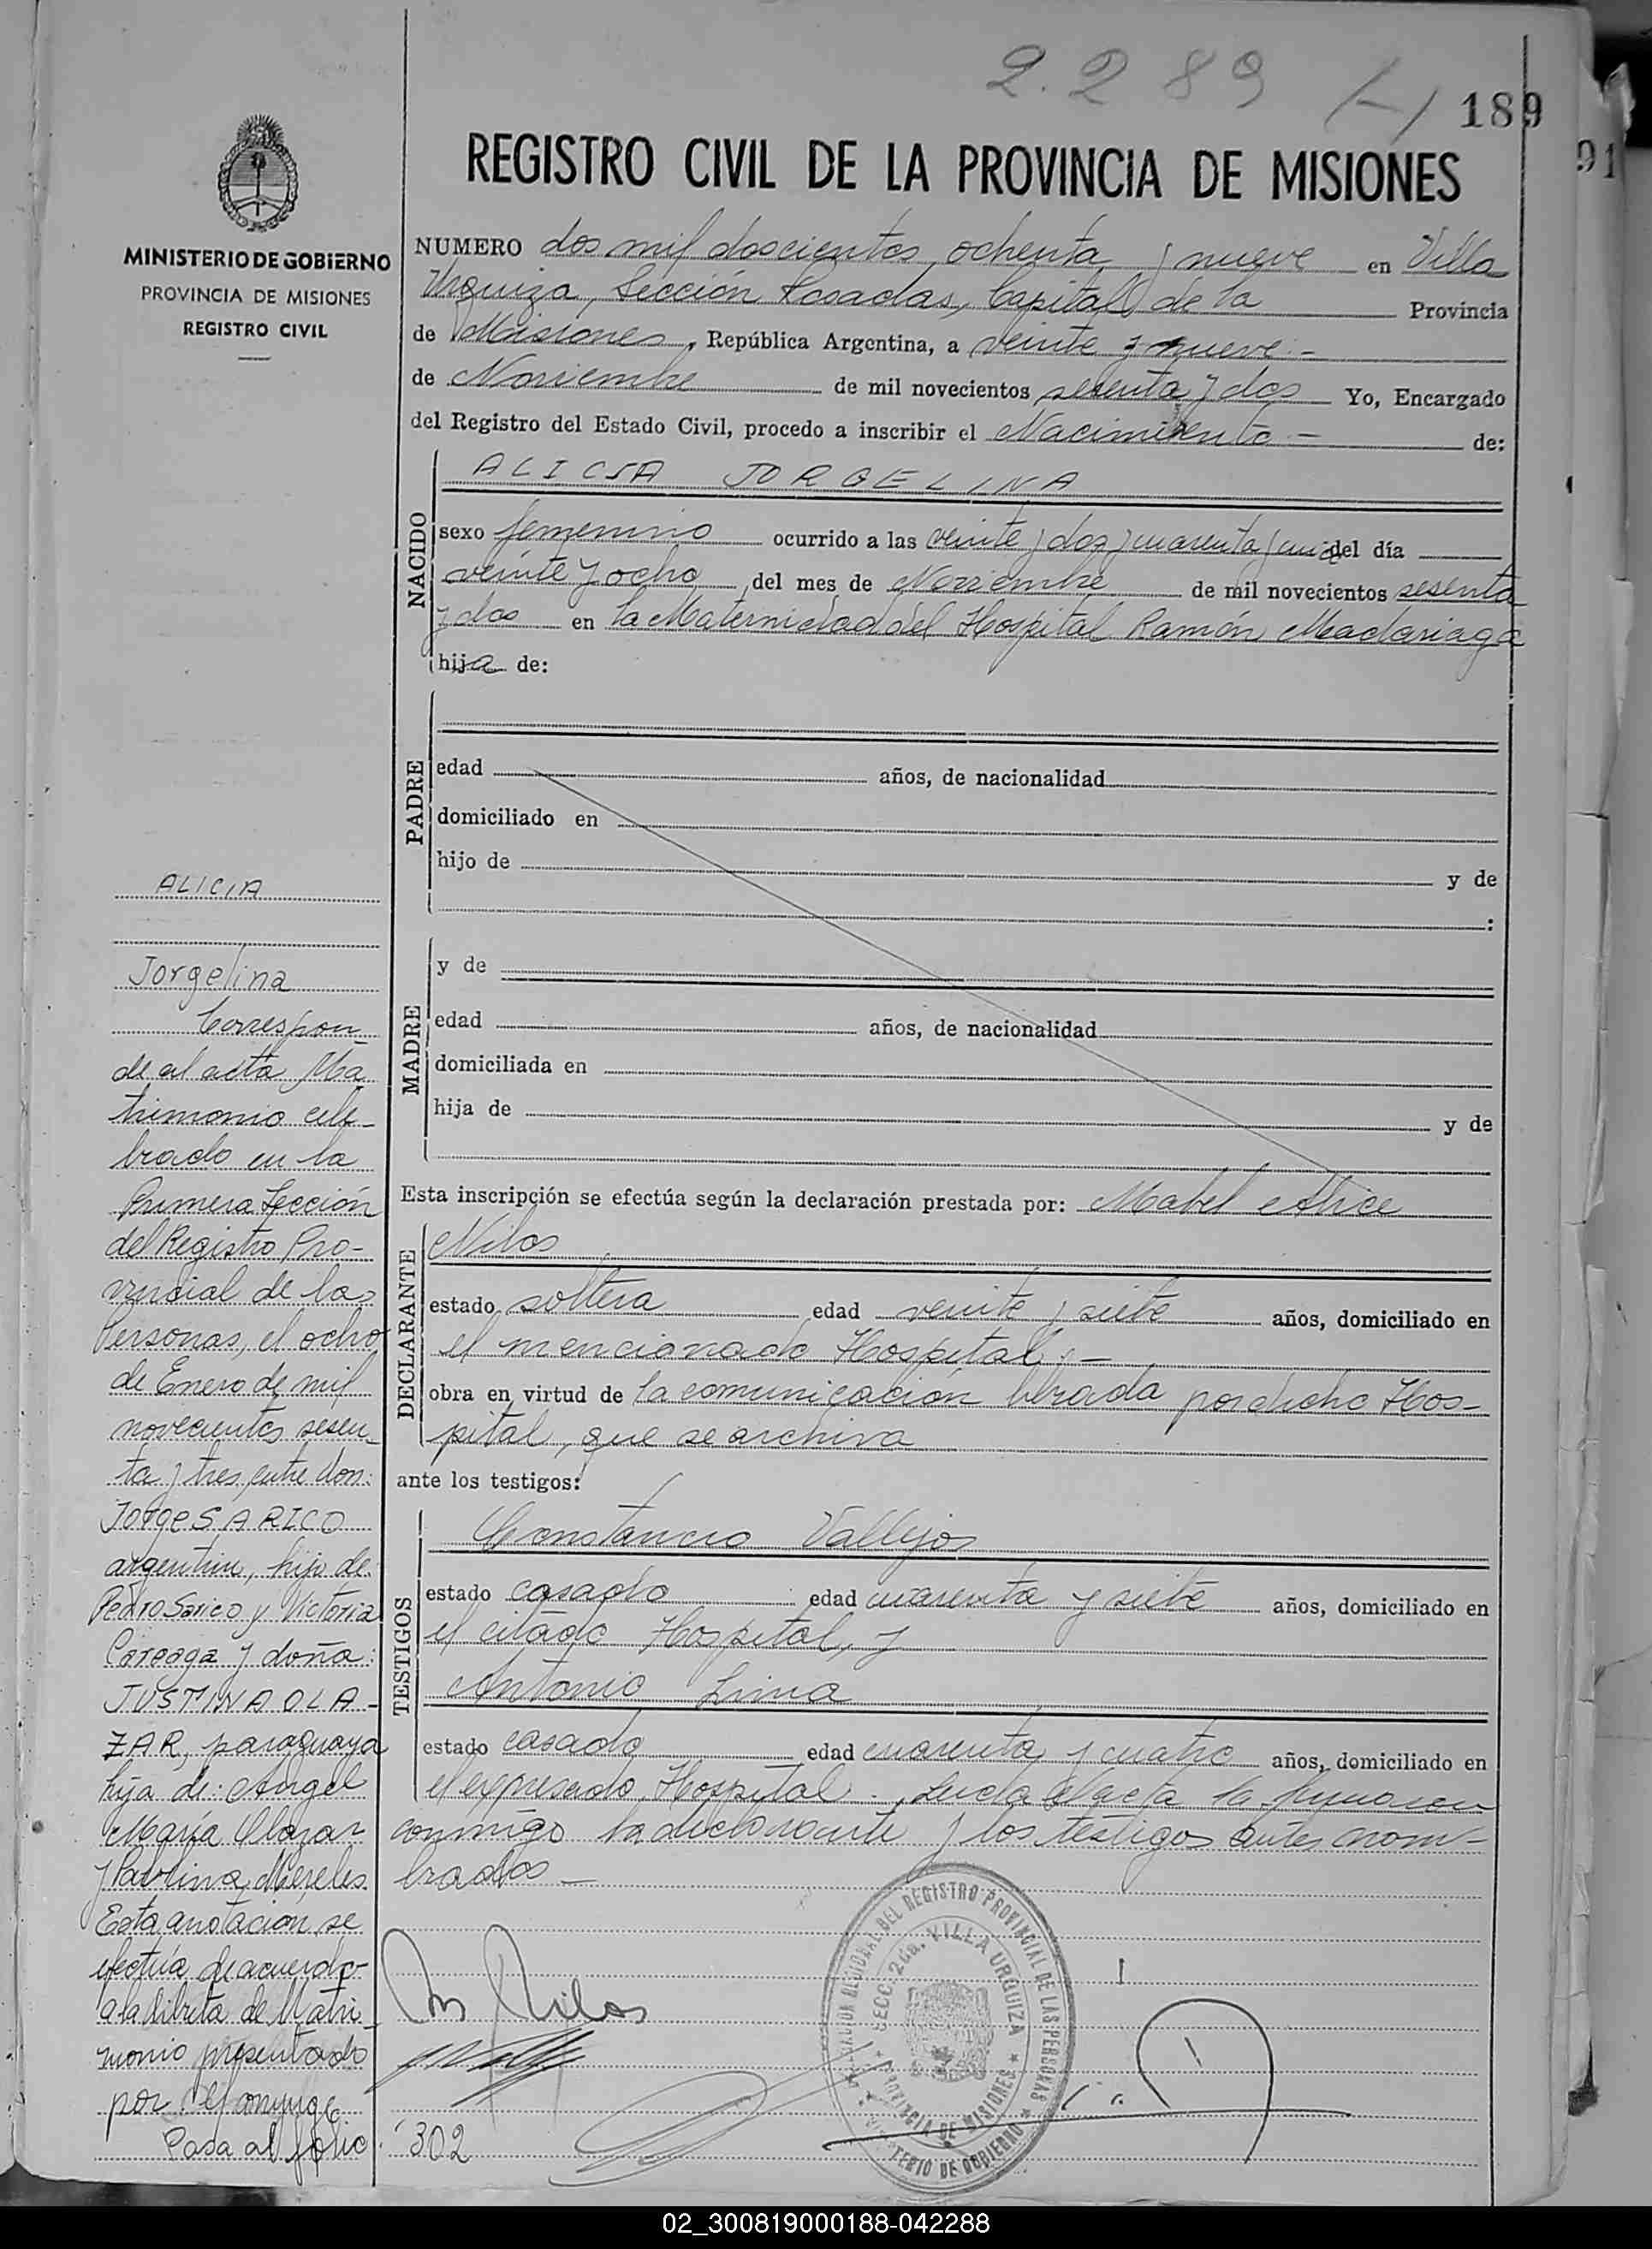 2.289
189
91
REGISTRO CIVIL DE LA PROVINCIA DE MISIONES
MINISTERIO DE GOBIERNO
PROVINCIA DE MISIONES
REGISTRO CIVIL
NUMERO dos mil doscientos ochenta y nueve en Villa
Urquiza, Sección Posadas, Capital de la Provincia
de Misiones, República Argentina, a veinte y nueve.-
de Noviembre de mil novecientos sesenta y dos Yo, Encargado
del Registro del Estado Civil, procedo a inscribir el Nacimiento - de:
NACIDO
ALICIA JORGELINA
sexo femenino ocurrido a las veinte y dos y cuarenta y un del día
veinte y ocho del mes de Noviembre de mil novecientos sesenta
y dos en la Maternidad del Hospital Ramón Madariaga
hija de:
PADRE
edad años, de nacionalidad
domiciliado en
hijo de y de
:
MADRE
y de
edad años, de nacionalidad
domiciliada en
hija de y de
Esta inscripción se efectúa según la declaración prestada por: Mabel Alice
DECLARANTE
Nilos
estado soltera edad veinte y siete años, domiciliado en
el mencionado Hospital; -
obra en virtud de la comunicación librada por dicho Hos-
pital, que se archiva
ante los testigos:
TESTIGOS
Constancio Vallejos
estado casado edad cuarenta y siete años, domiciliado en
el citado Hospital, y
Antonio Lima
estado casado edad cuarenta y cuatro años, domiciliado en
el expresado Hospital. Leída el acta la firmaron
conmigo la declarante y los testigos antes nom-
brados -
ALICIA
Jorgelina
Correspon-
de al acta Ma
trimonio cele-
brado en la
Primera Sección
del Registro Pro-
vincial de las
Personas, el ocho
de Enero de mil
novecientos sesen-
ta y tres, entre don:
Jorge SARICO
argentino, hijo de:
Pedro Sarico y Victoria
Careaga y doña:
JUSTINA OLA-
ZAR, paraguaya
hija de: Angel
María Olazar
y Paulina Mereles
Esta anotación se
efectúa de acuerdo-
a la libreta de Matri-
monio presentado
por el conyuge
Pasa al folio: 302
DELEGACION REGIONAL DEL REGISTRO PROVINCIAL DE LAS PERSONAS
SECC. 2da. VILLA URQUIZA
PROVINCIA DE MISIONES
MINISTERIO DE GOBIERNO
02_300819000188-042288